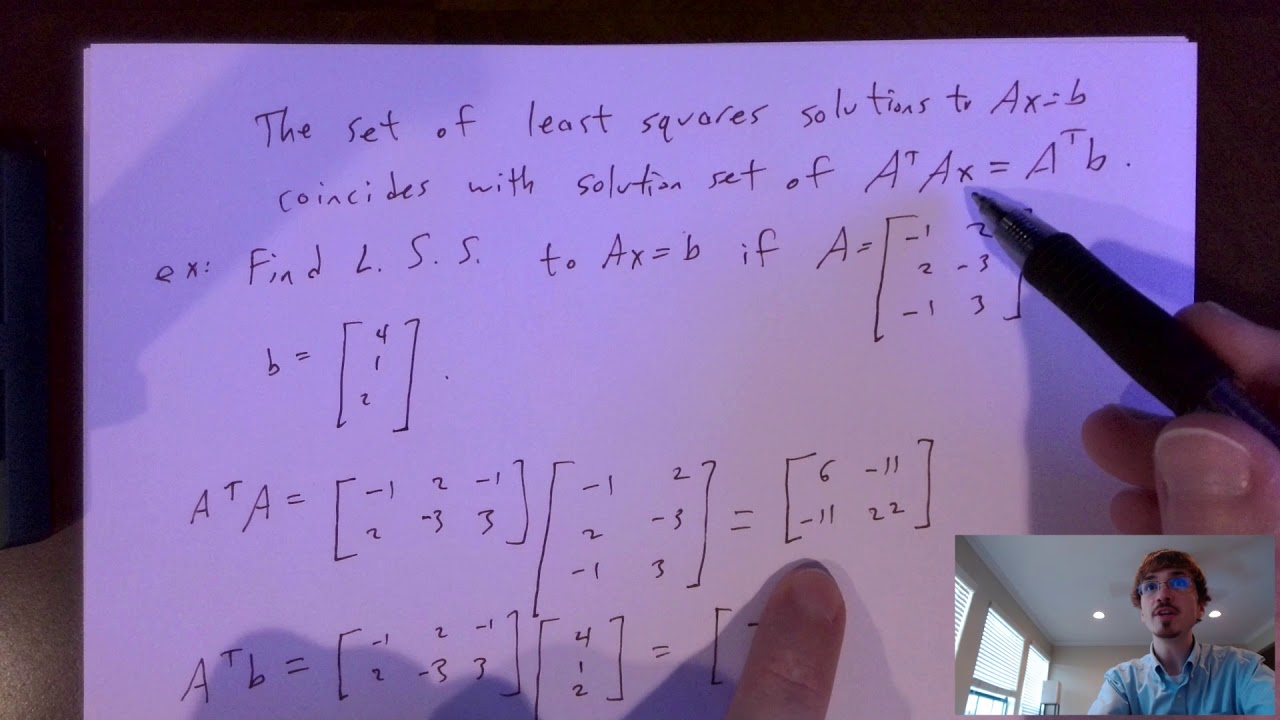 The set of least squares solutions to Ax=b
coincides with solution set of AᵀAx = Aᵀb.
ex: Find L. S. S. to Ax=b if A= [ -1 2
2 -3
-1 3 ]
b = [ 4
1
2 ] .
AᵀA = [ -1 2 -1 ] [ -1 2 ] = [ 6 -11 ]
[ 2 -3 3 ] [ 2 -3 ] [ -11 22 ]
[ -1 3 ]
Aᵀb = [ -1 2 -1 ] [ 4 ] = [ -
[ 2 -3 3 ] [ 1 ]
[ 2 ]